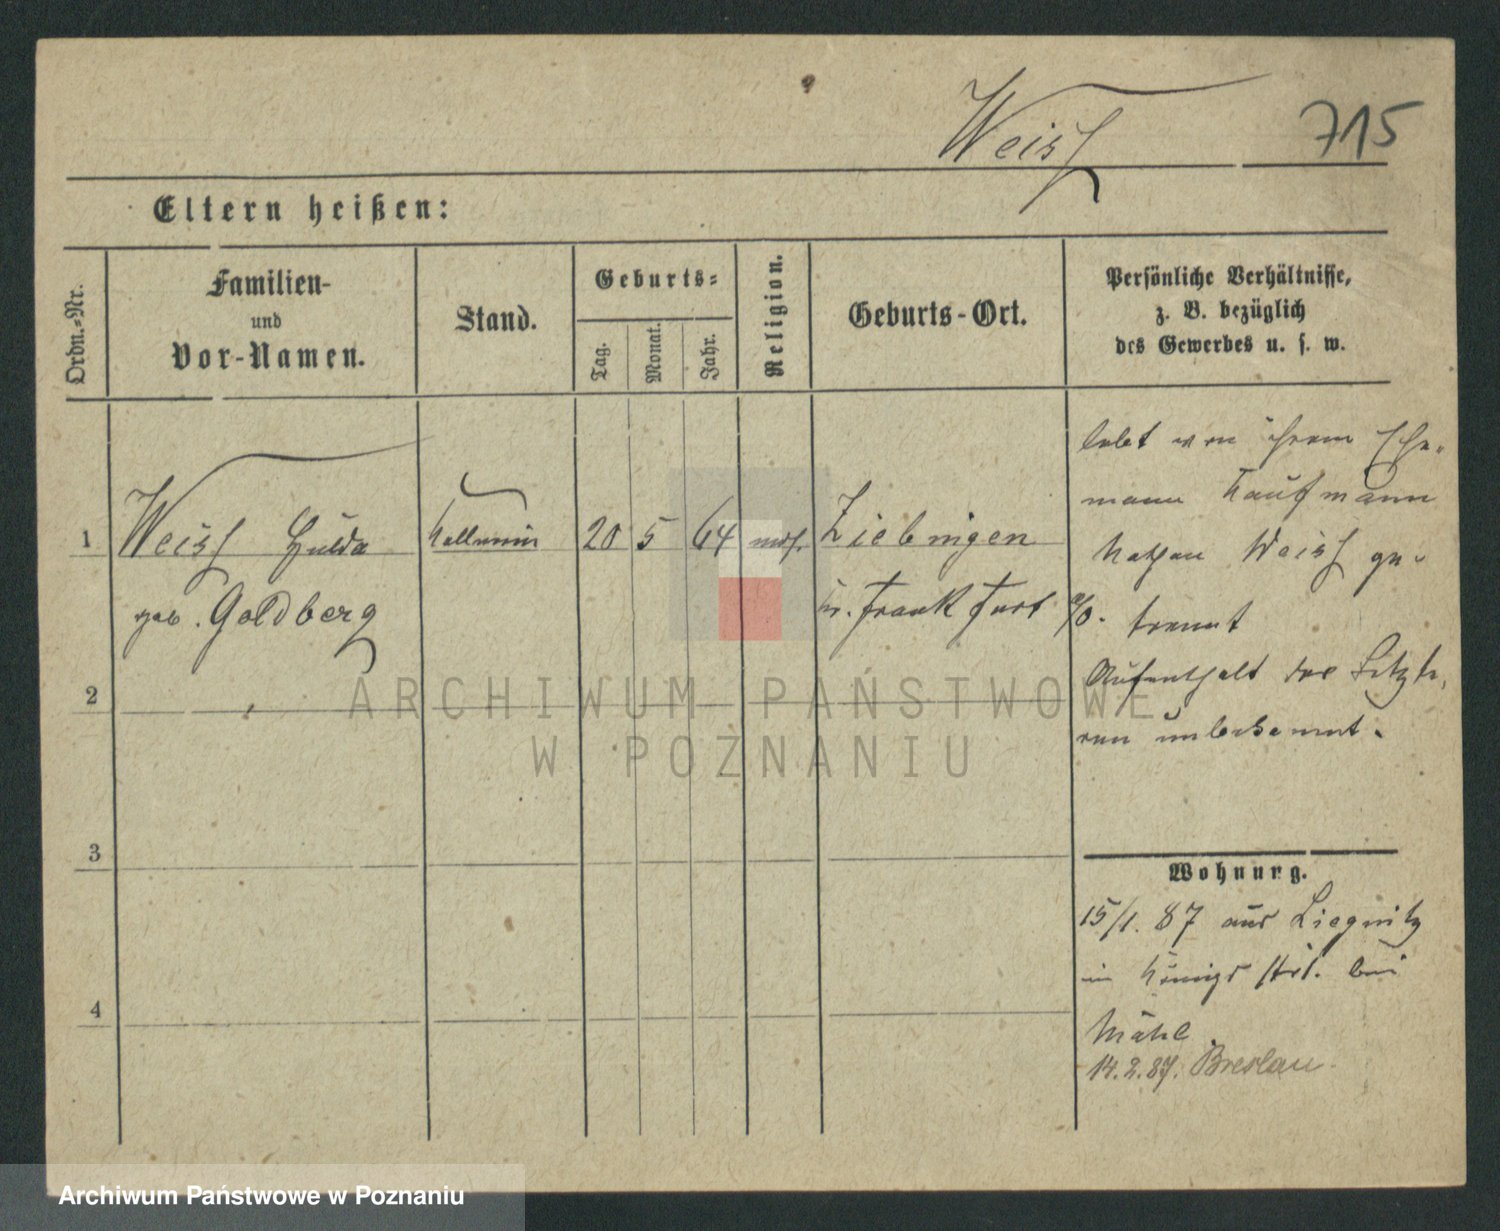 Weiß
715
Eltern heißen:
Ordn.-Nr.
Familien-
und
Vor-Namen.
Stand.
Geburts-
Tag.
Monat.
Jahr.
Religion.
Geburts-Ort.
Persönliche Verhältnisse,
z. B. bezüglich
des Gewerbes u. s. w.
1
Weiß Hulda
geb. Goldberg
Kellnerin
20
5
64
mos.
Ziebingen
Kr. Frankfurt a/O.
lebt von ihrem Ehe-
mann Kaufmann
Nathan Weiß ge-
trennt
Aufenthalt des Letzte-
ren unbekannt.
2
3
4
Wohnung.
15/1. 87 aus Liegnitz
in Königsstr. bei
14.2.87. Breslau
ARCHIWUM PAŃSTWOWE
W POZNANIU
Archiwum Państwowe w Poznaniu